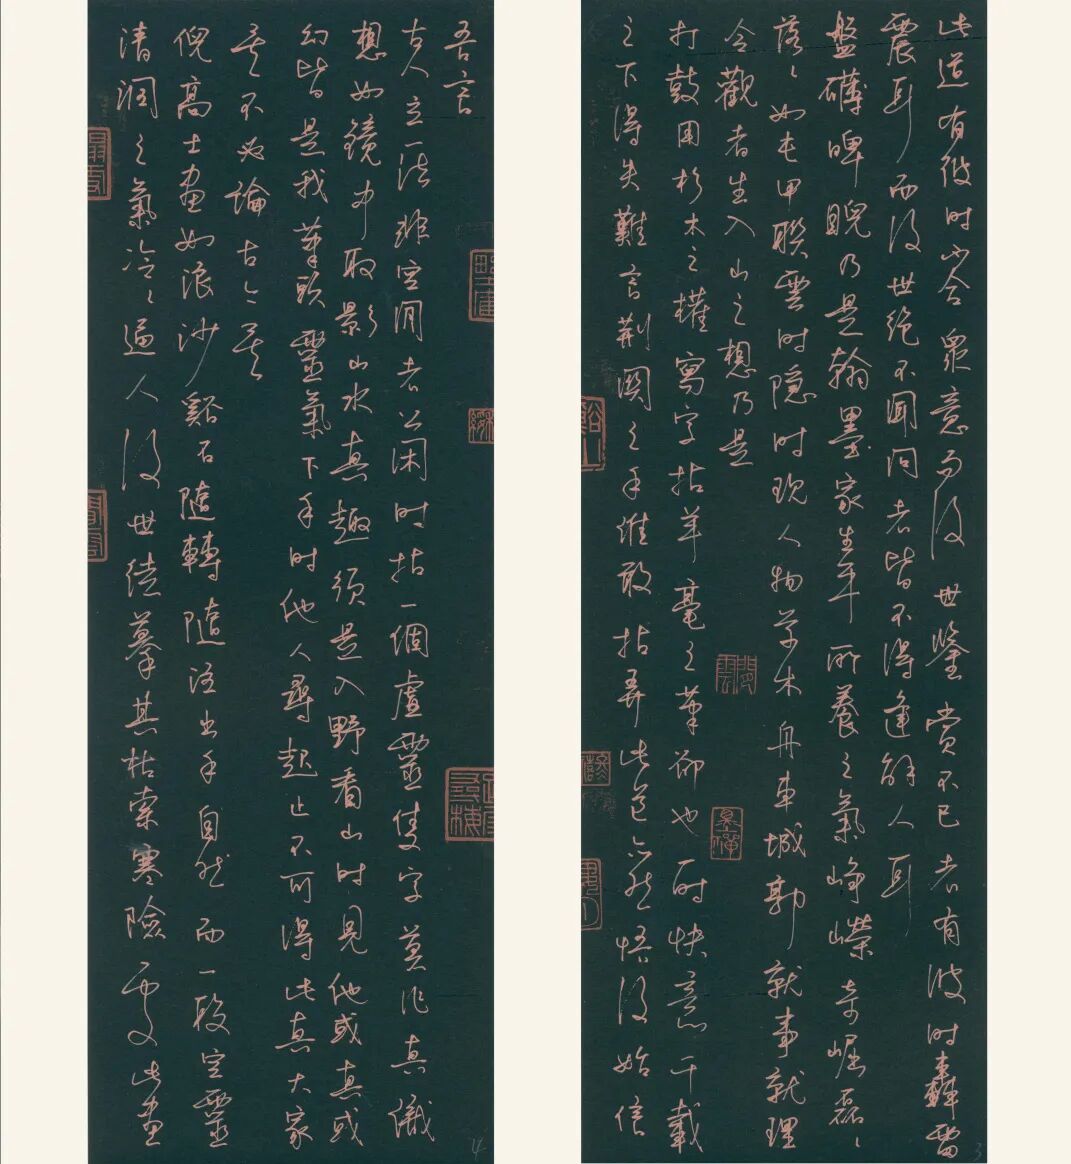 此道有彼時不合眾意而後世鑒賞不已者有彼時轟雷
震耳而後世絕不聞問者皆不得逢解人耳
盤礴睥睨乃是翰墨家生平所養之氣崢嶸奇崛磊〻
落〻如屯甲聯雲時隱時現人物草木舟車城郭就事就理
令觀者生入山之想乃是
打鼓用杉木之寫字拈羊毫之筆卻也一時快意千載
之下得失難言荊關之手誰敢拈弄此道悟後始信
3
吾言
古人立一法非空閒者公閑時拈一個虛靈隻字莫作真儀
想如鏡中取影山水真趣須是入野看山時見他或真或
幻皆是我筆頭靈氣下手時他人尋起止不可得此真大家
矣不必論古今矣
倪高士畫如浪沙谿石隨轉隨注出乎自然而一段空靈
清潤之氣冷〻逼人後世徒摹其枯索寒險處此畫
4